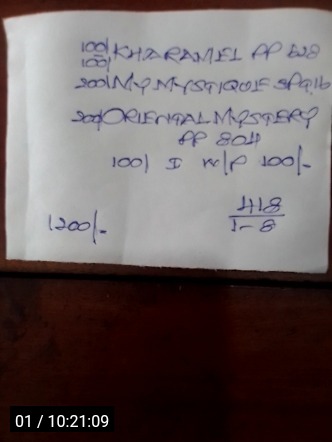 100/
100/ KHARAMEL PP 628
200/ MY MYSTIQUE SP 9,16
200/ ORIENTAL MYSTERY
PP 804
100/ I W/P 100/-
418
1-8
1200/-
01 / 10:21:09